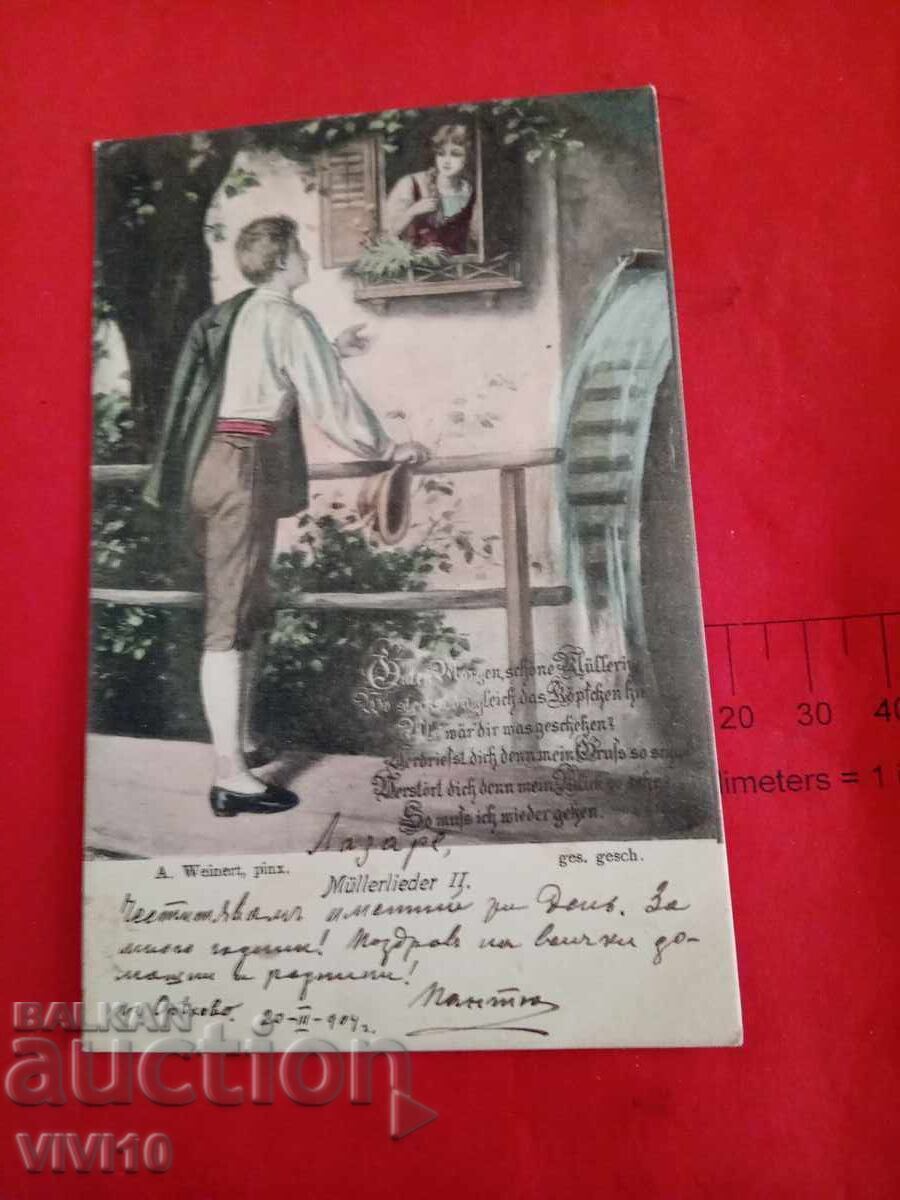 Guten Morgen, schöne Müllerin
Wo steckst du gleich das Köpfchen hin
Als wär' dir was geschehen?
Verdriesst dich denn mein Gruss so
Verstört dich denn mein Blick so sehr
So muss ich wieder gehen.
Лазаре,
A. Weinert, pinx.
ges. gesch.
Müllerlieder II.
Честитявамъ именние ри День. За
много години! Поздравъ на всички до-
мащни и роднини!
Орѣхово. 20-III-904 г.
Панто
20 30 40
limeters = 1
BALKAN
auction
VIVI10